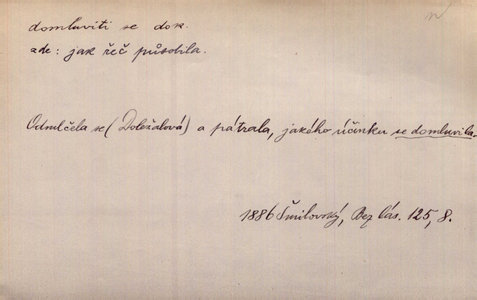 domluviti se dok.
zde: jak řeč působila.
Odmlčela se (Doležalová) a pátrala, jakého účinku se domluvila.
1886 Šmilovský, Bez lás. 125, 8.